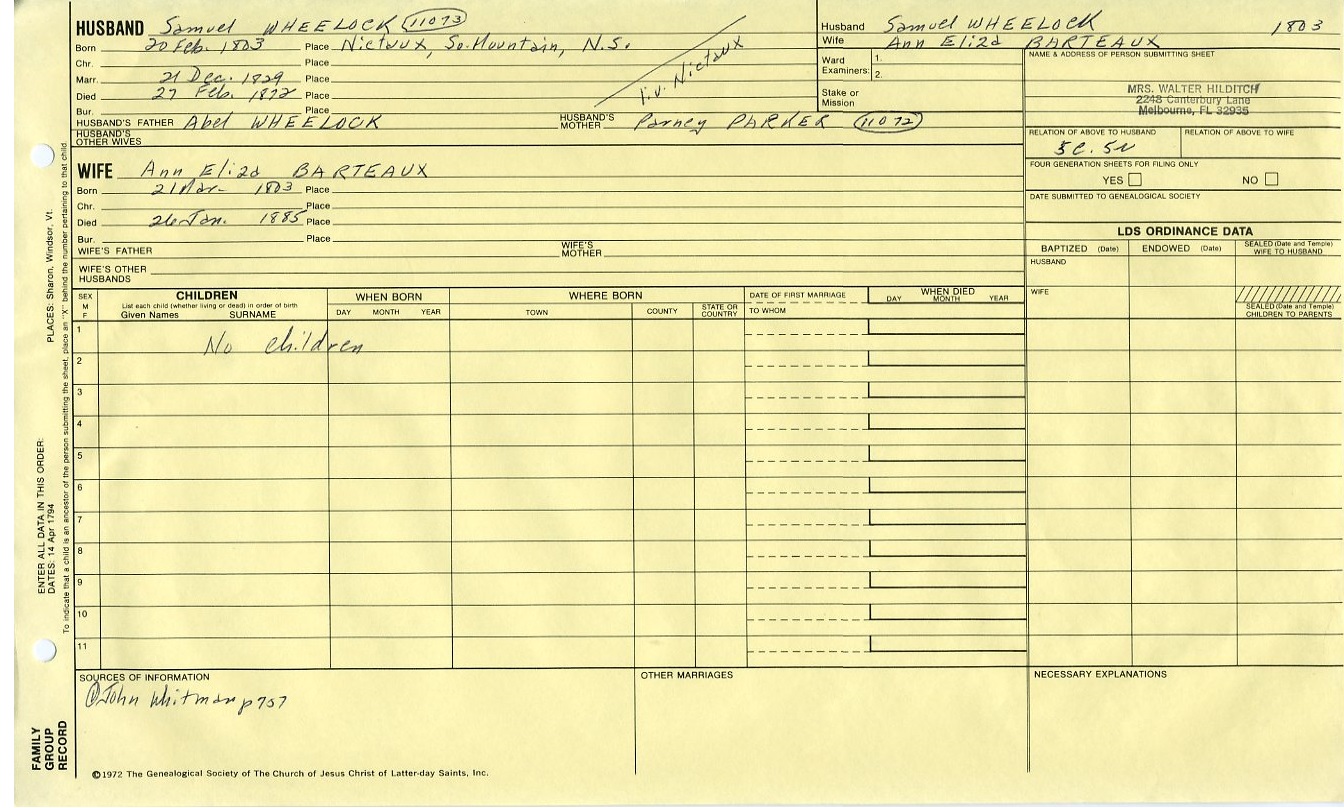 HUSBAND Samuel WHEELOCK 11073
Born 20 Feb. 1803 Place Nictaux, So. Mountain, N.S.
Chr. Place
Marr. 21 Dec. 1829 Place
Died 27 Feb. 1872 Place
Bur. Place
l.v. Nictaux
HUSBAND'S FATHER Abel WHEELOCK HUSBAND'S MOTHER Parney PARKER 11072
HUSBAND'S OTHER WIVES
Husband Samuel WHEELOCK 1803
Wife Ann Eliza BARTEAUX
Ward Examiners: 1.
2.
Stake or Mission
NAME & ADDRESS OF PERSON SUBMITTING SHEET
MRS. WALTER HILDITCH
2248 Canterbury Lane
Melbourne, FL 32935
RELATION OF ABOVE TO HUSBAND RELATION OF ABOVE TO WIFE
5C. 5N
FOUR GENERATION SHEETS FOR FILING ONLY
YES NO
DATE SUBMITTED TO GENEALOGICAL SOCIETY
WIFE Ann Eliza BARTEAUX
Born 21 Mar- 1803 Place
Chr. Place
Died 26 Jan. 1885 Place
Bur. Place
WIFE'S FATHER WIFE'S MOTHER
WIFE'S OTHER HUSBANDS
LDS ORDINANCE DATA
BAPTIZED (Date) ENDOWED (Date) SEALED (Date and Temple) WIFE TO HUSBAND
HUSBAND
WIFE
SEALED (Date and Temple) CHILDREN TO PARENTS
SEX M F
CHILDREN
List each child (whether living or dead) in order of birth
Given Names SURNAME
WHEN BORN
DAY MONTH YEAR
WHERE BORN
TOWN COUNTY STATE OR COUNTRY
DATE OF FIRST MARRIAGE
TO WHOM
WHEN DIED
DAY MONTH YEAR
1
No children
2
3
4
5
6
7
8
9
10
11
SOURCES OF INFORMATION
① John Whitman p757
OTHER MARRIAGES
NECESSARY EXPLANATIONS
©1972 The Genealogical Society of The Church of Jesus Christ of Latter-day Saints, Inc.
FAMILY GROUP RECORD
ENTER ALL DATA IN THIS ORDER:
DATES: 14 Apr 1794
PLACES: Sharon, Windsor, Vt.
To indicate that a child is an ancestor of the person submitting the sheet, place an "X" behind the number pertaining to that child.